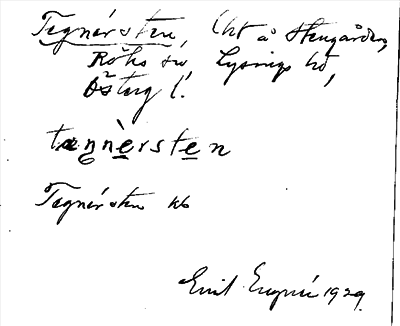 Tegnérsten, lht å Stengården,
Röks sn, Lysings hd,
Östergl.
tæŋnèrsten
Tegnérsten kb
Emil 1929.